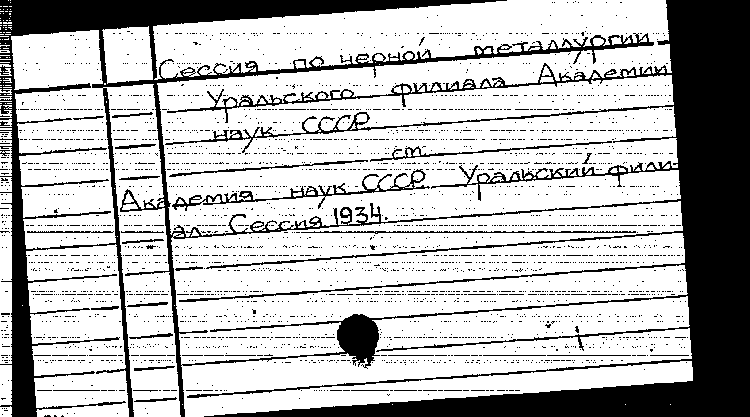 Сессия по черной металлургии
Уральского филиала Академии
наук СССР
см.
Академия наук СССР. Уральский фили-
ал. Сессия 1934.